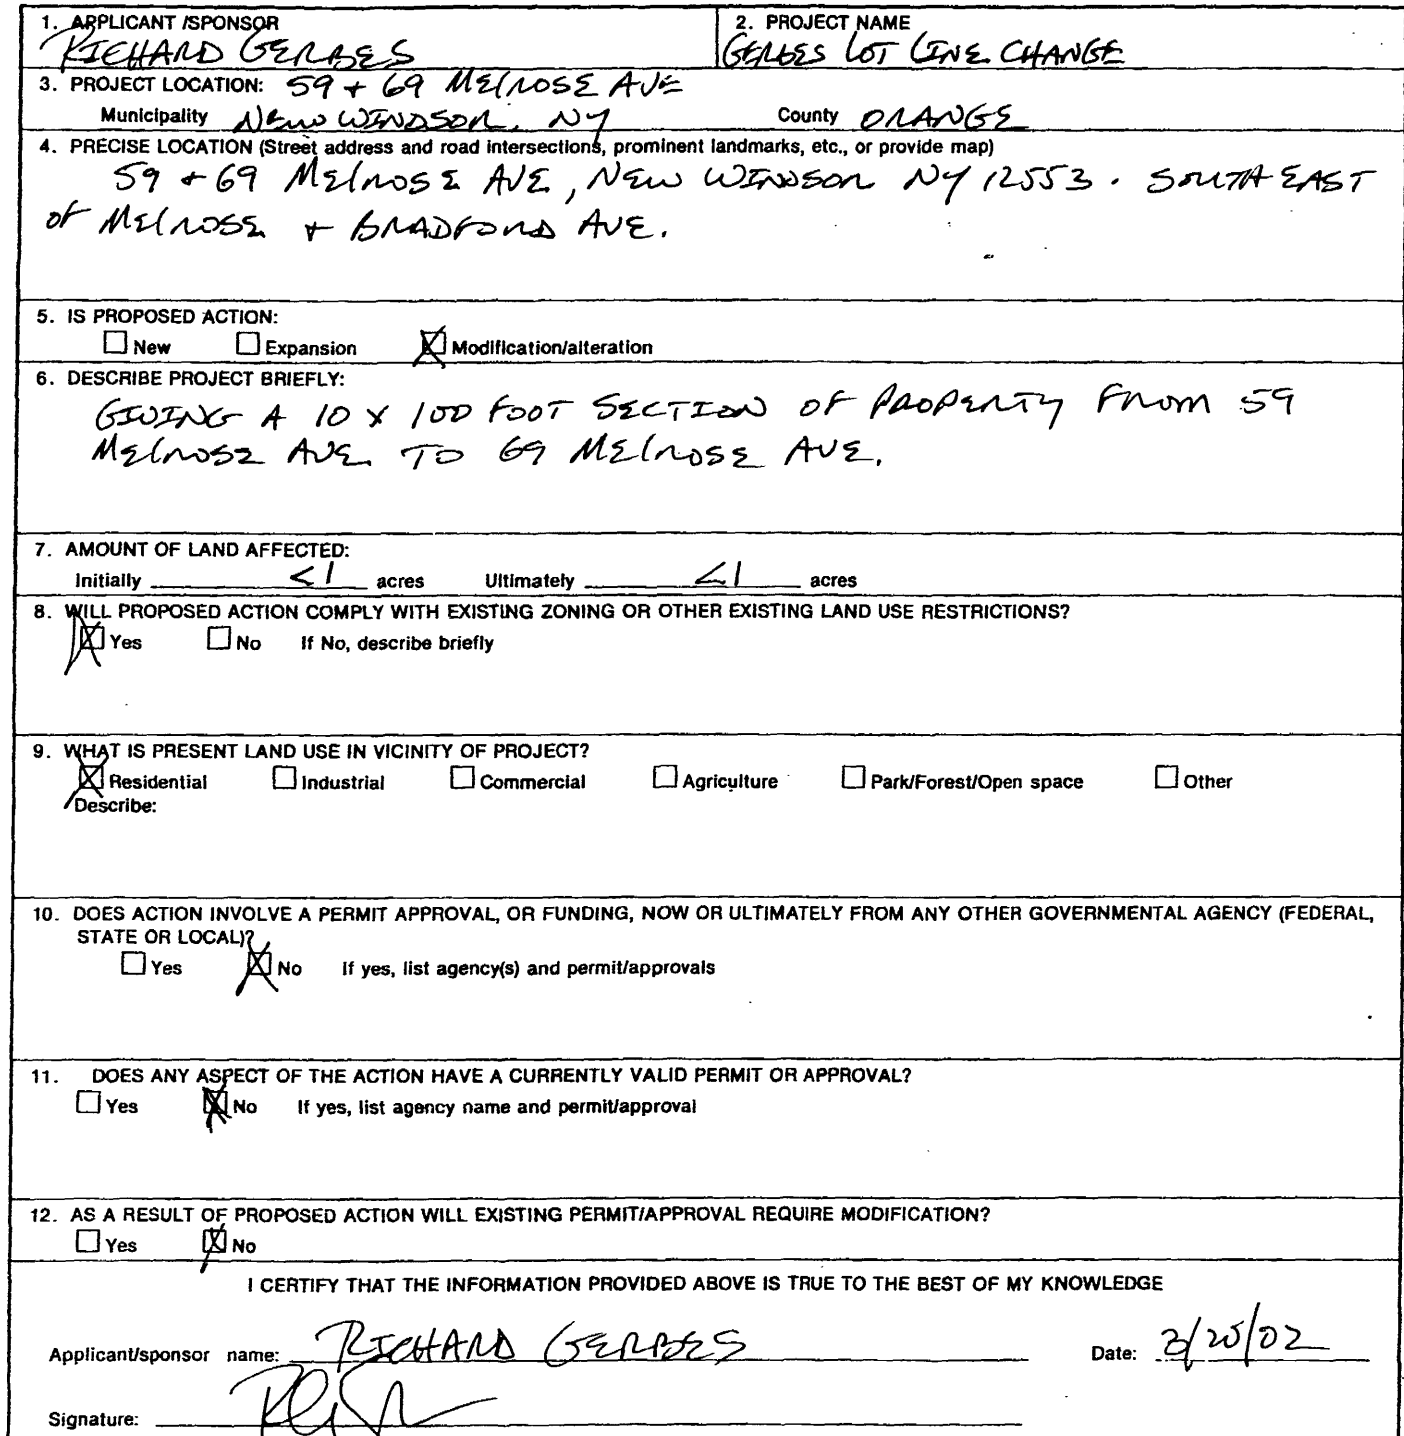 1. APPLICANT /SPONSOR
RICHARD GERBES
2. PROJECT NAME
GERBES LOT LINE CHANGE
3. PROJECT LOCATION: 59 + 69 MELROSE AVE
Municipality NEW WINDSOR, NY County ORANGE
4. PRECISE LOCATION (Street address and road intersections, prominent landmarks, etc., or provide map)
59 + 69 MELROSE AVE, NEW WINDSOR NY 12553. SOUTH EAST
OF MELROSE + BRADFORD AVE.
5. IS PROPOSED ACTION:
New Expansion Modification/alteration
6. DESCRIBE PROJECT BRIEFLY:
GIVING A 10 X 100 FOOT SECTION OF PROPERTY FROM 59
MELROSE AVE TO 69 MELROSE AVE.
7. AMOUNT OF LAND AFFECTED:
Initially <1 acres Ultimately <1 acres
8. WILL PROPOSED ACTION COMPLY WITH EXISTING ZONING OR OTHER EXISTING LAND USE RESTRICTIONS?
Yes No If No, describe briefly
9. WHAT IS PRESENT LAND USE IN VICINITY OF PROJECT?
Residential Industrial Commercial Agriculture Park/Forest/Open space Other
Describe:
10. DOES ACTION INVOLVE A PERMIT APPROVAL, OR FUNDING, NOW OR ULTIMATELY FROM ANY OTHER GOVERNMENTAL AGENCY (FEDERAL,
STATE OR LOCAL)?
Yes No If yes, list agency(s) and permit/approvals
11. DOES ANY ASPECT OF THE ACTION HAVE A CURRENTLY VALID PERMIT OR APPROVAL?
Yes No If yes, list agency name and permit/approval
12. AS A RESULT OF PROPOSED ACTION WILL EXISTING PERMIT/APPROVAL REQUIRE MODIFICATION?
Yes No
I CERTIFY THAT THE INFORMATION PROVIDED ABOVE IS TRUE TO THE BEST OF MY KNOWLEDGE
Applicant/sponsor name: RICHARD GERBES Date:
Signature: